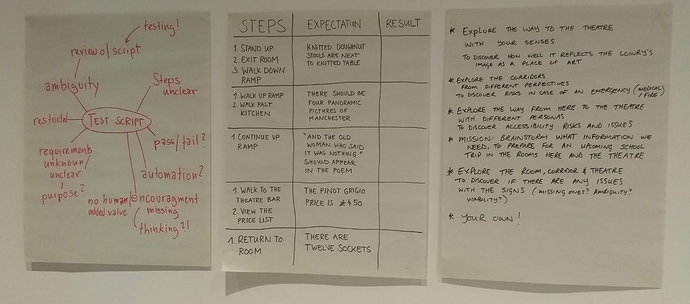 testing!
review of script
ambiguity
Steps
unclear
restricted
TEST SCRIPT
pass/fail?
requirements
unknown/
unclear
automation?
purpose?
no human
added value
encouragment
missing
thinking?!
STEPS EXPECTATION RESULT
1. STAND UP
2. EXIT ROOM
3. WALK DOWN
RAMP
KNITTED DOUGHNUT
STOOLS ARE NEXT
TO KNITTED TABLE
1. WALK UP RAMP
2. WALK PAST
KITCHEN
THERE SHOULD BE
FOUR PANORAMIC
PICTURES OF
MANCHESTER
1. CONTINUE UP
RAMP
"AND THE OLD
WOMAN WHO SAID
IT WAS NOTHING"
SHOULD APPEAR
IN THE POEM
1. WALK TO THE
THEATRE BAR
2. VIEW THE
PRICE LIST
THE PINOT GRIGIO
PRICE IS £4.50
1. RETURN TO
ROOM
THERE ARE
TWELVE SOCKETS
* EXPLORE THE WAY TO THE THEATRE
WITH YOUR SENSES
TO DISCOVER HOW WELL IT REFLECTS THE LOWRY'S
IMAGE AS A PLACE OF ART
* EXPLORE THE CORRIDORS
FROM DIFFERENT PERSPECTIVES
TO DISCOVER RISKS IN CASE OF AN EMERGENCY (MEDICAL
/ FIRE)
* EXPLORE THE WAY FROM HERE TO THE THEATRE
WITH DIFFERENT PERSONAS
TO DISCOVER ACCESSIBILITY RISKS AND ISSUES
* MISSION: BRAINSTORM WHAT INFORMATION WE
NEED, TO PREPARE FOR AN UPCOMING SCHOOL
TRIP IN THE ROOMS HERE AND THE THEATRE
* EXPLORE THE ROOM, CORRIDOR & THEATRE
TO DISCOVER IF THERE ARE ANY ISSUES
WITH THE SIGNS (MISSING ONES? AMBIGUITY?
VIABILITY?)
* YOUR OWN!